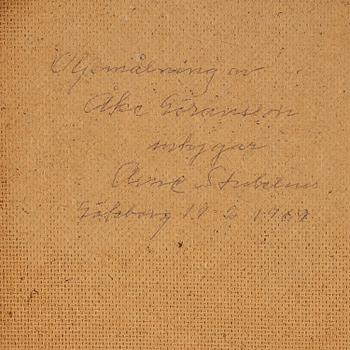 Oljemålning av
Åke Göranson
intygar
Arne Stubelius
Göteborg 19 2 1969